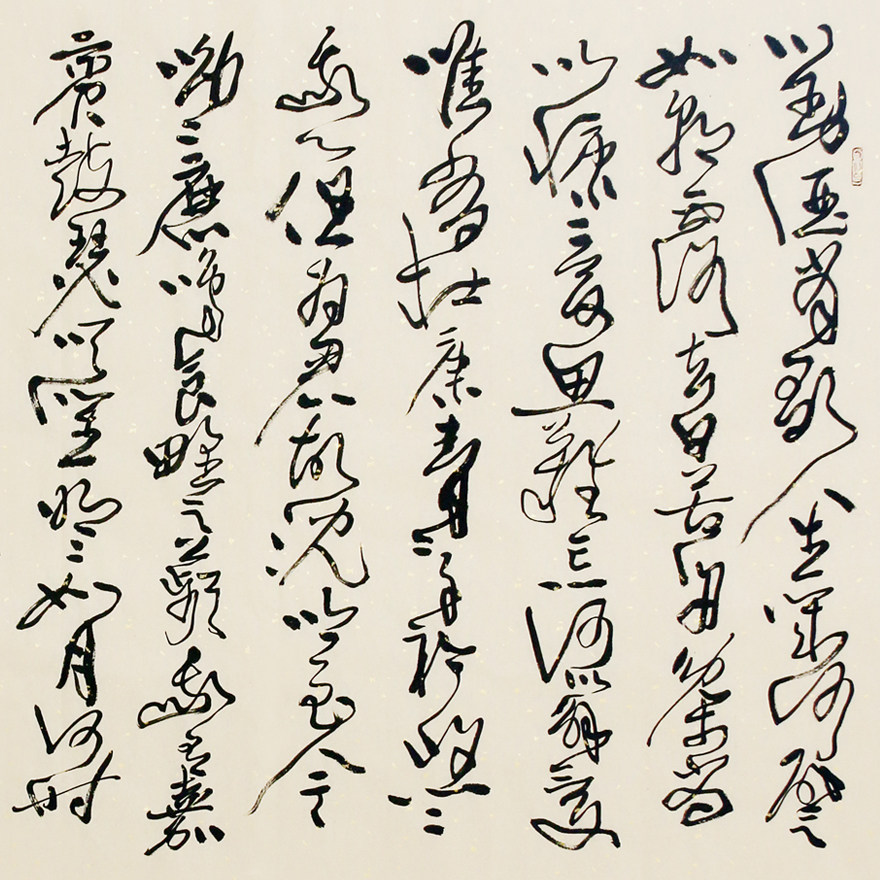 對酒當歌人生幾何譬
如朝露去日苦多慨當
以慷憂思難忘何以解憂
唯有杜康青〻子衿悠〻
我心但為君故沈吟至今
呦〻鹿鳴食野之蘋我有嘉
賓鼓瑟吹笙明〻如月何時